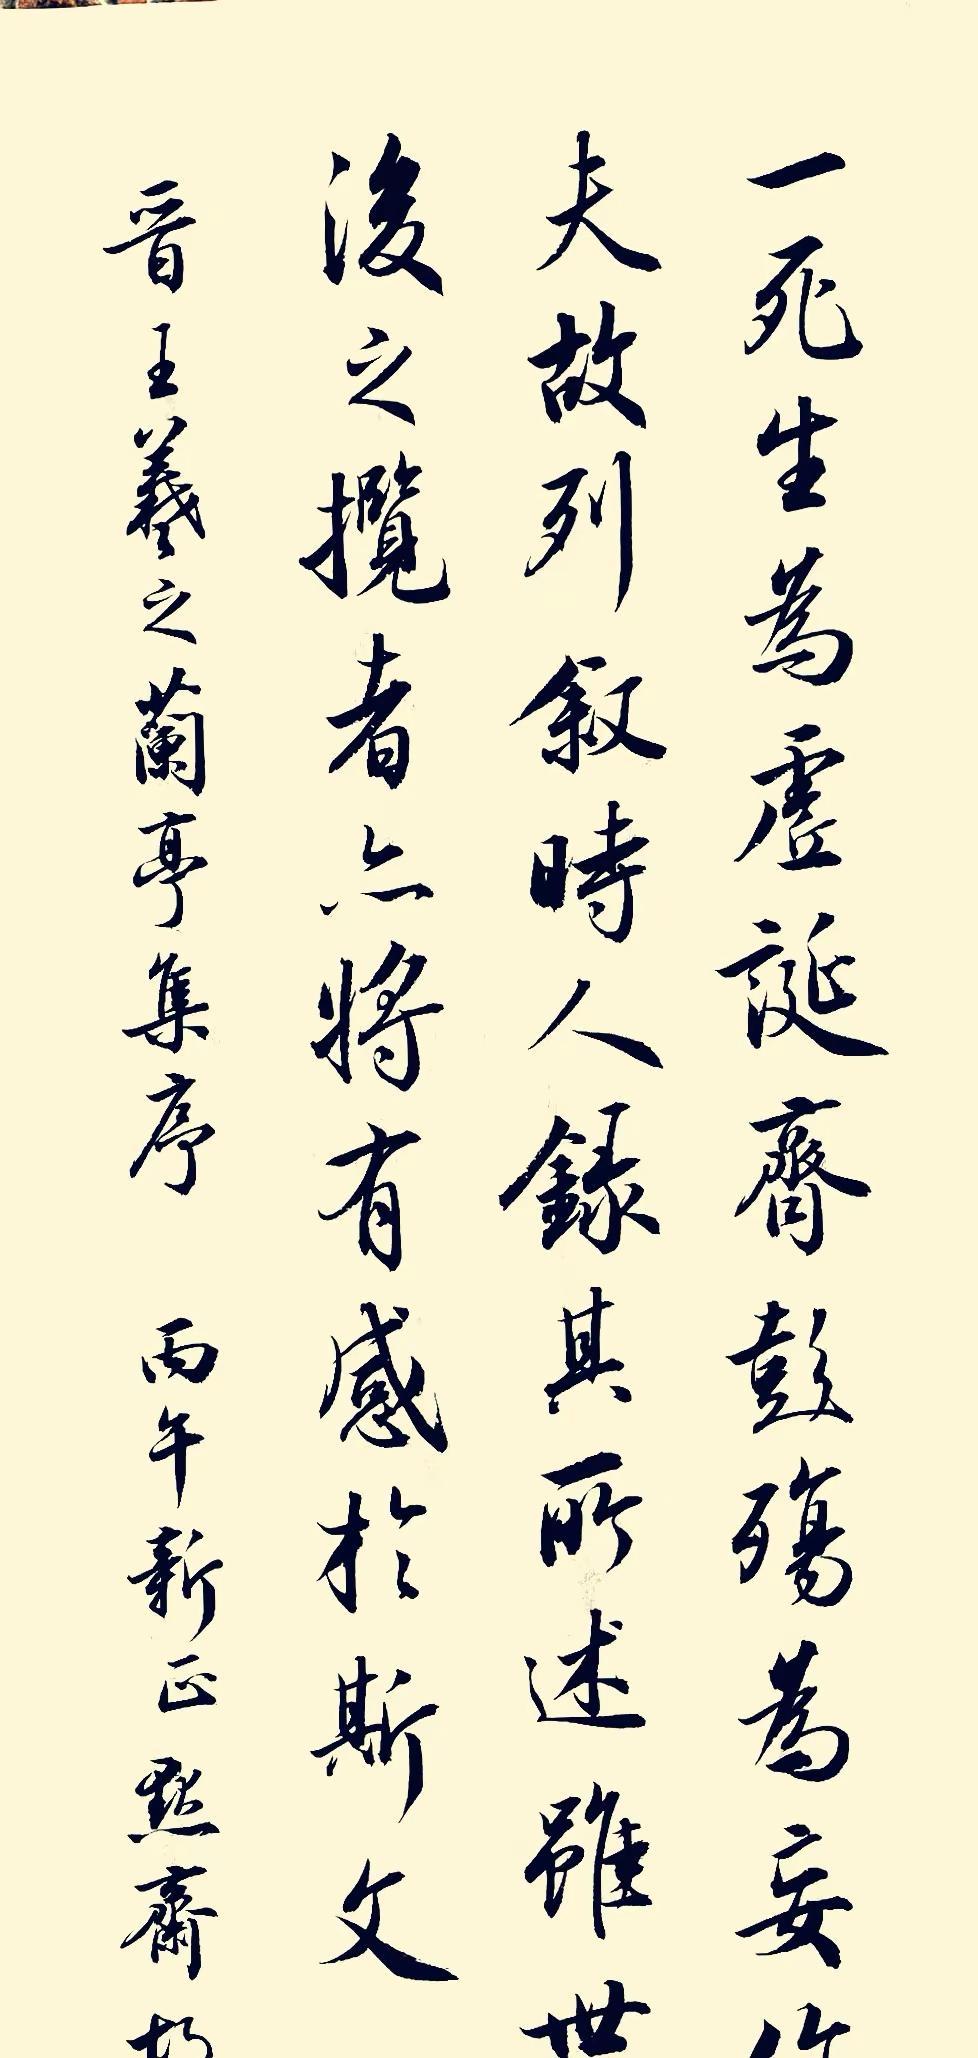 一死生為虛誕齊彭殤為妄作
夫故列敘時人錄其所述雖世
後之攬者亦將有感於斯文
晉王羲之蘭亭集序 丙午新正 默齋